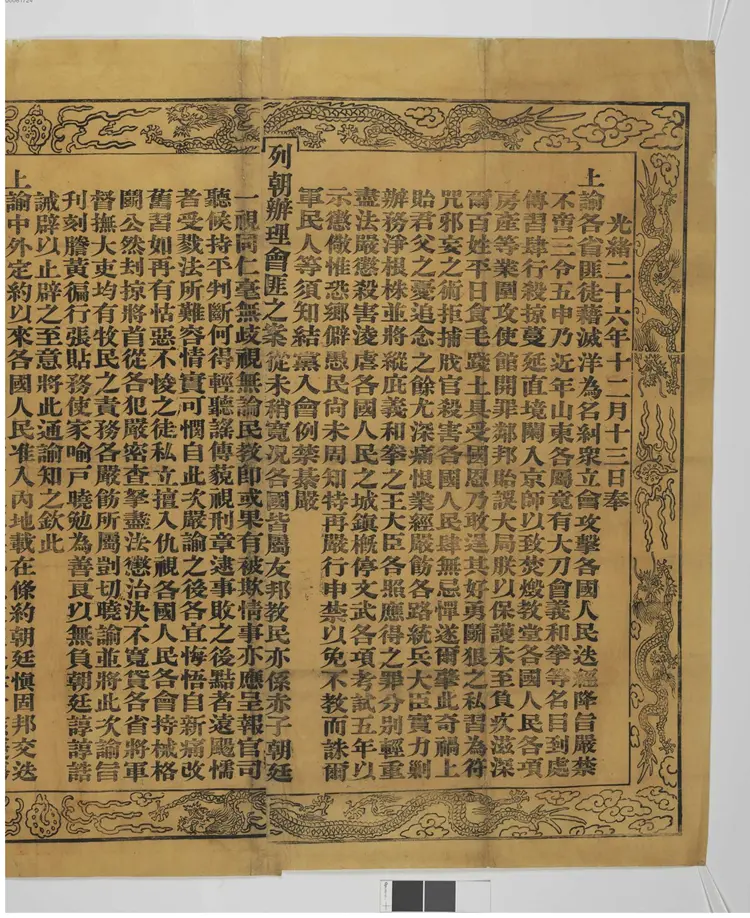 光緒二十六年十二月十三日奉
上諭各省匪徒藉滅洋為名糾衆立會攻擊各國人民迭經降旨嚴禁
不啻三令五申乃近年山東各屬竟有大刀會義和拳等名目到處
傳習肆行殺掠蔓延直境闌入京師以致焚燬教堂各國人民各項
房產等業圍攻使館開罪鄰邦貽誤大局朕以保護未至負疚滋深
爾百姓平日食毛踐土具受國恩乃敢逞其好勇鬭狠之私習為符
咒邪妄之術拒捕戕官殺害各國人民肆無忌憚遂爾肇此奇禍上
貽君父之憂追念之餘尤深痛恨業經嚴飭各路統兵大臣實力剿
辦務淨根株並將縱庇義和拳之王大臣各照應得之罪分別輕重
盡法嚴懲殺害凌虐各國人民之城鎮概停文武各項考試五年以
示懲儆惟恐鄉僻愚民尚未周知特再嚴行申禁以免不教而誅爾
軍民人等須知結黨入會例禁綦嚴
列朝辦理會匪之案從未稍寬況各國皆屬友邦教民亦係赤子朝廷
一視同仁毫無歧視無論民教即或果有被欺情事亦應呈報官司
聽候持平判斷何得輕聽謠傳藐視刑章逮事敗之後黠者遠颺懦
者受戮法所難容情實可憫自此次嚴諭之後各宜悔悟自新痛改
舊習如再有怙惡不悛之徒私立擅入仇視各國人民各會持械格
鬭公然刦掠將首從各犯嚴密查拏盡法懲治決不寬貸各省將軍
督撫大吏均有牧民之責務各嚴飭所屬剴切曉諭並將此次諭旨
刊刻謄黃徧行張貼務使家喻戶曉勉為善良以無負朝廷諄諄誥
誡辟以止辟之至意將此通諭知之欽此
上諭中外定約以來各國人民准入內地載在條約朝廷慎固邦交迭